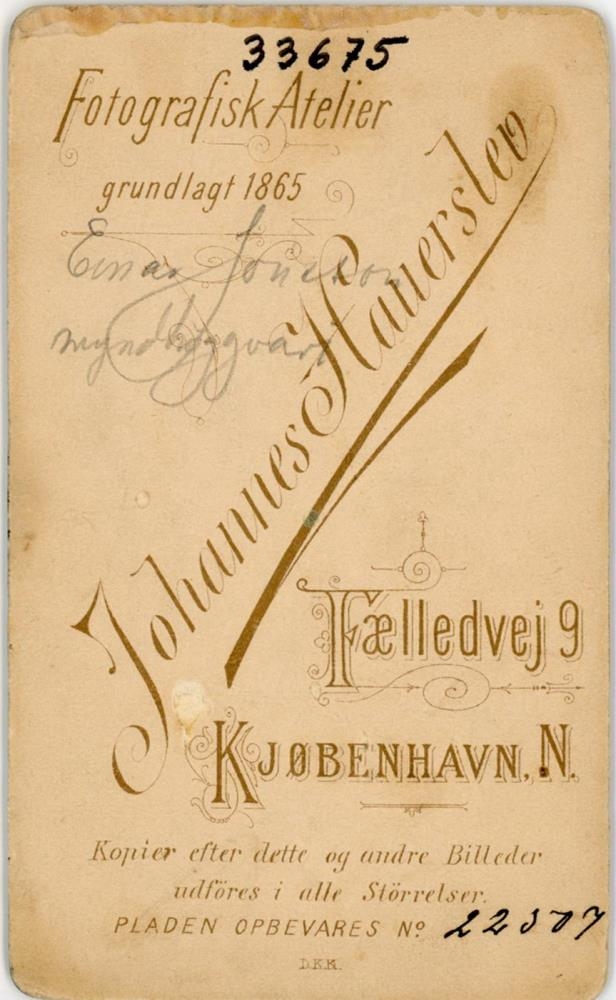 33675
Fotografisk Atelier
grundlagt 1865
Einar Jónsson
myndhöggvari
Johannes Hauerslev
Fælledvej 9
KJØBENHAVN, N.
Kopier efter dette og andre Billeder
udföres i alle Störrelser.
PLADEN OPBEVARES No 22507
D.K.K.